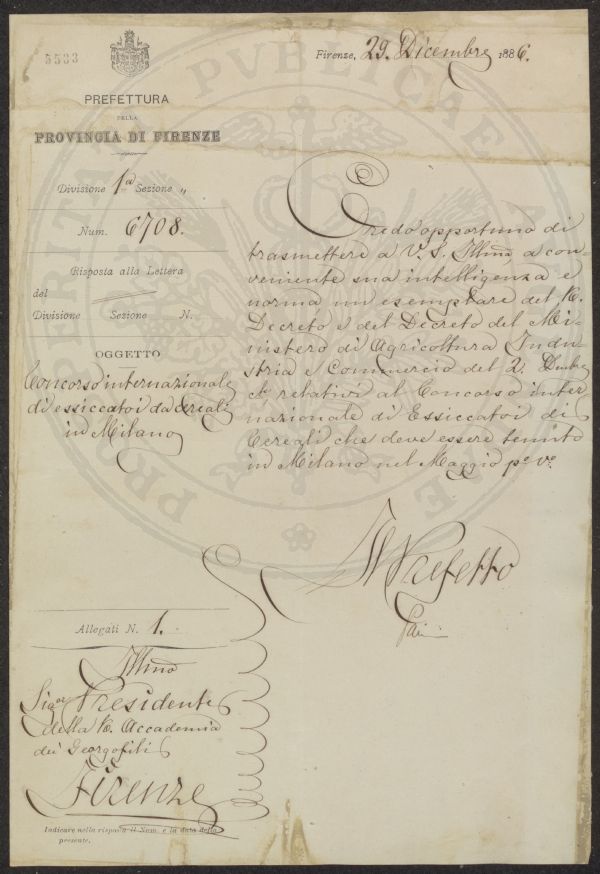 5533
PREFETTURA
DELLA
PROVINCIA DI FIRENZE
Firenze, 29. Dicembre 1886.
Divisione 1a Sezione "
Num. 6708.
Risposta alla Lettera
del
Divisione Sezione N.
OGGETTO
Concorso internazionale
di essiccatoi da cereali
in Milano
Credo opportuno di
trasmettere a V. S. Illma, a con-
veniente sua intelligenza e
norma un esemplare del R.
Decreto e del Decreto del Mi-
nistero di Agricoltura Indu-
stria e Commercio del 2. Dmbre
relativi al Concorso inter
nazionale di Essiccatoi di
Cereali che deve essere tenuto
in Milano nel Maggio po vo.
Il Prefetto
Allegati N. 1.
Illmo
Sigor Presidente
della R. Accademia
dei Georgofili
Firenze
Indicare nella risposta il Num. e la data della
presente.
PUBLICAE
PROSPERITATI